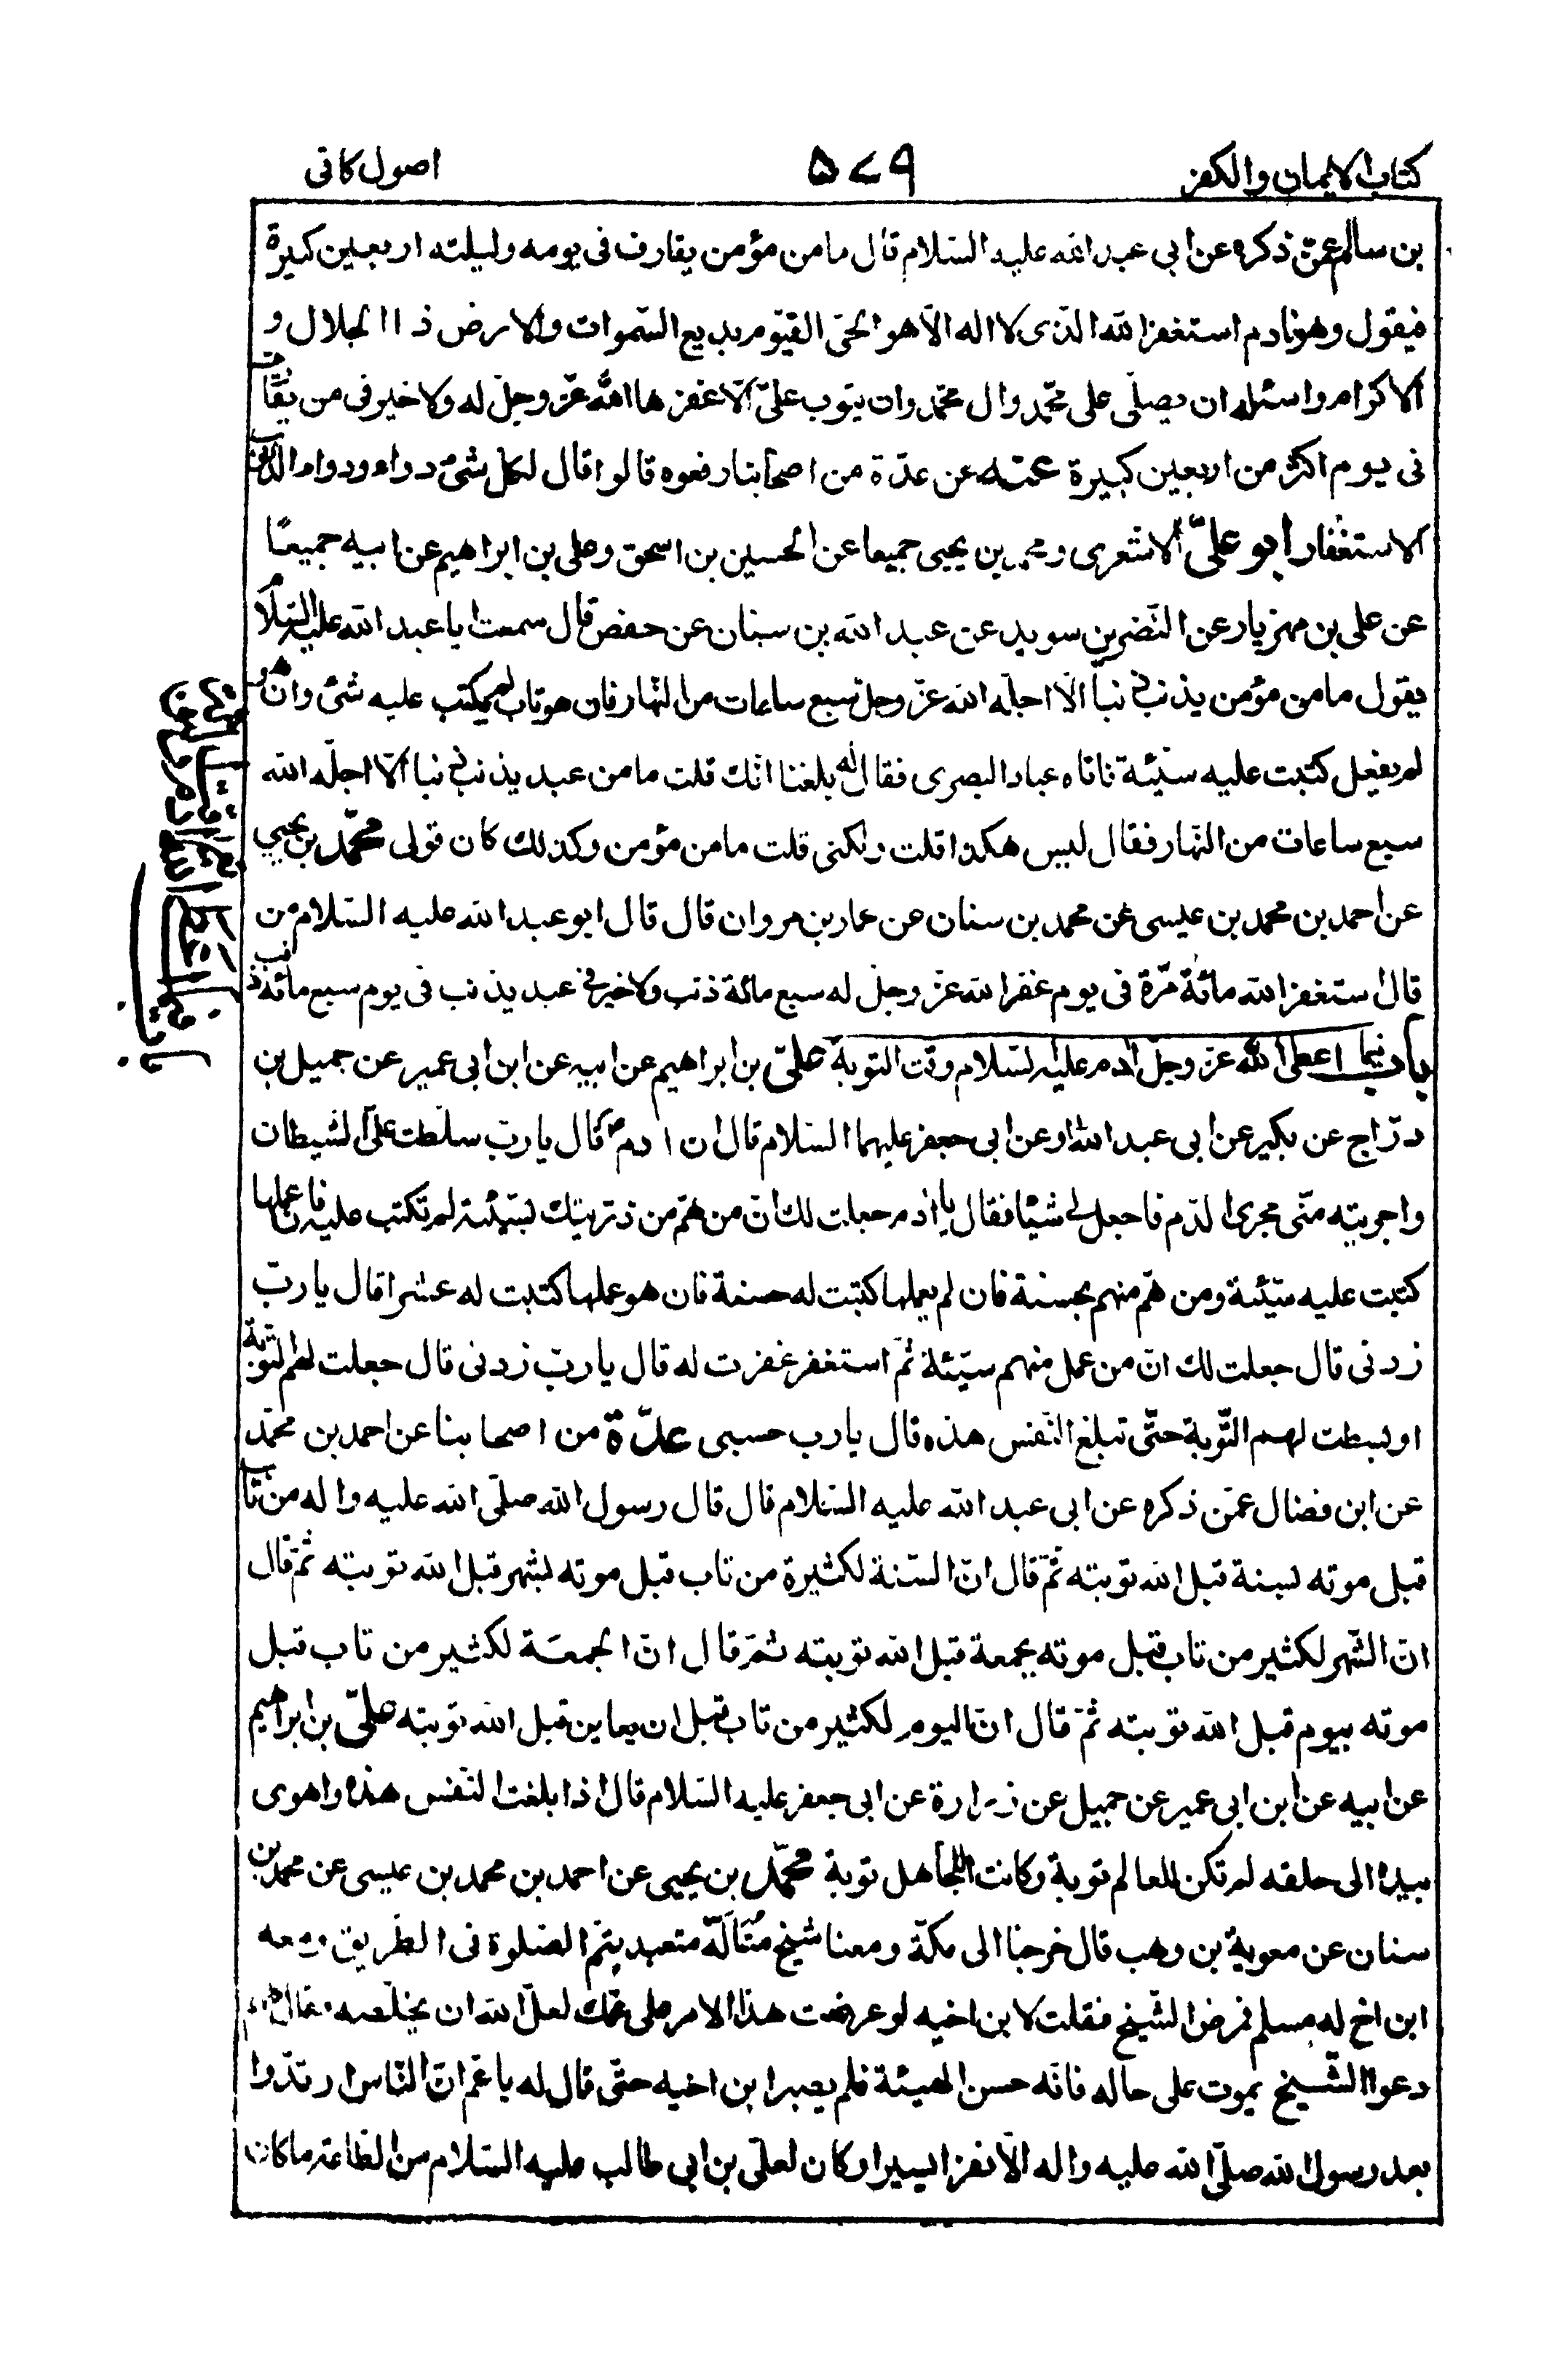 كتاب الايمان والكفر ٥٧٩ اصول كافى
بن سالم عمّن ذكره عن ابى عبد الله عليه السّلام قال ما من مؤمن يقارف فى يومه وليلته اربعين كبيرة
فيقول وهو نادم استغفر الله الّذى لا اله الّا هو الحىّ القيّوم بديع السّموات والارض ذا الجلال و
الاكرام واسئله ان يصلّى على محمّد وال محمّد وان يتوب علىّ الّا غفرها الله عزّ وجلّ له ولا خير فى من يقارف
فى يوم اكثر من اربعين كبيرة عنه عن عدّة من اصحابنا رفعوه قالوا قال لكل شئ دواء ودواء الذنوب
الاستغفار ابو علىّ الاشعرى ومحمد بن يحيى جميعا عن الحسين بن اسحق وعلى بن ابراهيم عن ابيه جميعًا
عن على بن مهزيار عن النّضر بن سويد عن عبد الله بن سنان عن حفص قال سمعت ابا عبد الله عليه السّلام
يقول ما من مؤمن يذنب ذنبا الّا اجلّه الله عزّ وجلّ سبع ساعات من النّهار فان هو تاب لم يكتب عليه شئ وان هو
لم يفعل كتبت عليه سيّئة فاتاه عباد البصرى فقال له بلغنا انّك قلت ما من عبد يذنب ذنبا الّا اجلّه الله
سبع ساعات من النّهار فقال ليس هكذا قلت ولكنى قلت ما من مؤمن وكذلك كان قولى محمّد بن يحيى
عن احمد بن محمد بن عيسى عن محمد بن سنان عن عمار بن مروان قال قال ابو عبد الله عليه السّلام من
قال استغفر الله مائة مرّة فى يوم غفر الله عزّ وجلّ له سبع مائة ذنب ولا خير فى عبد يذنب فى يوم سبع مائة ذنب
باب فيما اعطى الله عزّ وجلّ ادم عليه السّلام وقت التوبة علىّ بن ابراهيم عن ابيه عن ابن ابى عمير عن جميل بن
درّاج عن بكير عن ابى عبد الله او عن ابى جعفر عليهما السّلام قال ان ادم ع قال يا ربّ سلّطت علىّ الشيطان
واجريته منّى مجرى الدّم فاجعل لى شيئا فقال يا ادم جعلت لك انّ من همّ من ذرّيتك بسيّئة لم تكتب عليه فان عملها
كتبت عليه سيّئة ومن همّ منهم بحسنة فان لم يعملها كتبت له حسنة فان هو عملها كتبت له عشرا قال يا ربّ
زدنى قال جعلت لك انّ من عمل منهم سيّئة ثمّ استغفر غفرت له قال يا ربّ زدنى قال جعلت لهم التوبة
او بسطت لهم التّوبة حتّى تبلغ النّفس هذه قال يا رب حسبى عدّة من اصحابنا عن احمد بن محمّد
عن ابن فضال عمّن ذكره عن ابى عبد الله عليه السّلام قال قال رسول الله صلّى الله عليه واله من تاب
قبل موته بسنة قبل الله توبته ثمّ قال انّ السّنة لكثيرة من تاب قبل موته بشهر قبل الله توبته ثمّ قال
انّ الشّهر لكثير من تاب قبل موته بجمعة قبل الله توبته ثمّ قال انّ الجمعة لكثير من تاب قبل
موته بيوم قبل الله توبته ثمّ قال انّ اليوم لكثير من تاب قبل ان يعاين قبل الله توبته علىّ بن ابراهيم
عن ابيه عن ابن ابى عمير عن جميل عن زرارة عن ابى جعفر عليه السّلام قال اذا بلغت النّفس هذه واهوى
بيده الى حلقه لم تكن للعالم توبة وكانت للجاهل توبة محمّد بن يحيى عن احمد بن محمد بن عيسى عن محمد بن
سنان عن معوية بن وهب قال خرجنا الى مكّة ومعنا شيخ مُتَألّه متعبد يتمّ الصّلوة فى الطّريق ومعه
ابن اخ له مسلم فمرض الشّيخ فقلت لابن اخيه لو عرضت هذا الامر على عمّك لعلّ الله ان يخلّصه فقال كلهم
دعوا الشّيخ يموت على حاله فانّه حسن الهيئة فلم يصبر ابن اخيه حتّى قال له يا عمّ انّ النّاس ارتدّوا
بعد رسول الله صلّى الله عليه واله الّا نفرا يسيرا وكان لعلى بن ابى طالب عليه السّلام من الطّاعة ما كان